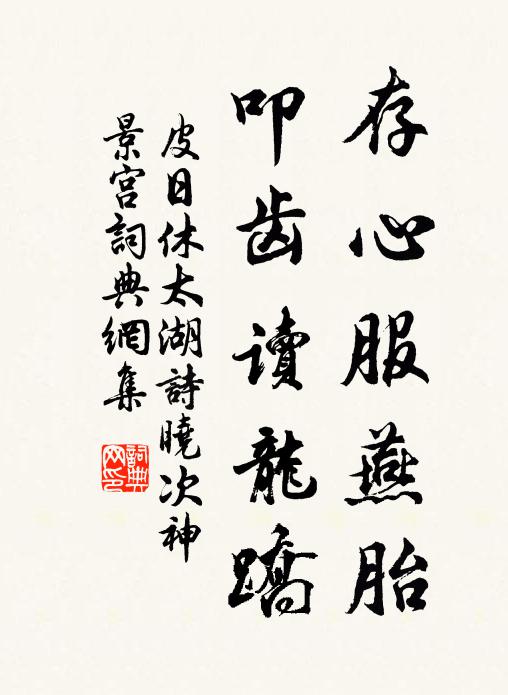 存心服燕胎
叩齿读龍蹻
皮日休太湖詩曉次神
景宫詞典網集
詞典网印